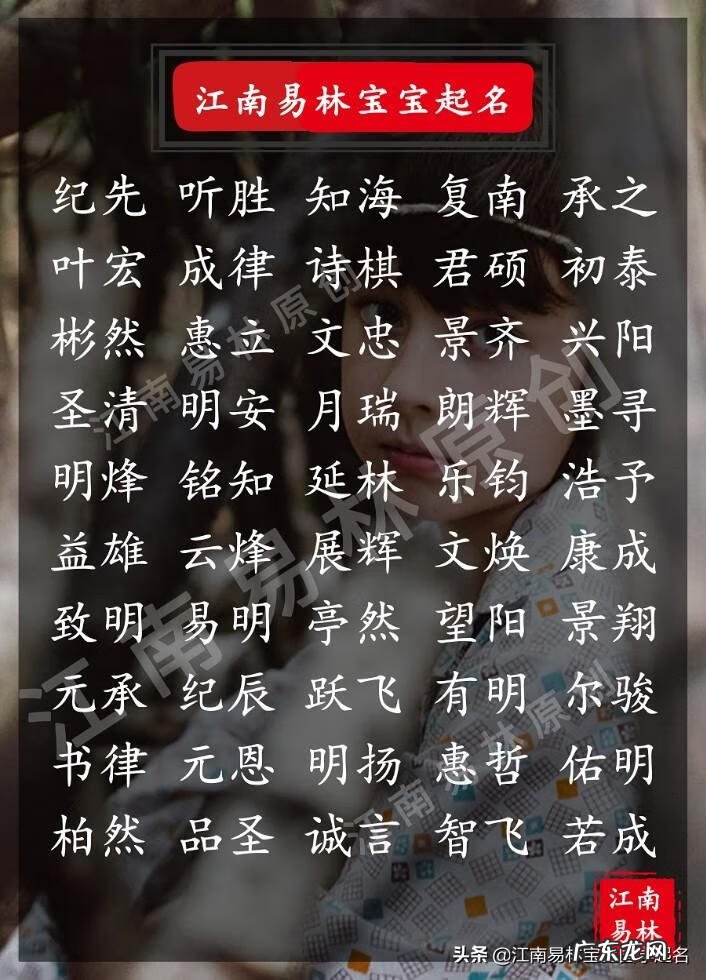 江南易林宝宝起名
纪先 听胜 知海 复南 承之
叶宏 成律 诗棋 君硕 初泰
彬然 惠立 文忠 景齐 兴阳
圣清 明安 月瑞 朗辉 墨寻
明烽 铭知 延林 乐钧 浩予
益雄 云烽 展辉 文焕 康成
致明 易明 亭然 望阳 景翔
元承 纪辰 跃飞 有明 尔骏
书律 元恩 明扬 惠哲 佑明
柏然 品圣 诚言 智飞 若成
江南易林原创
江南易林原创
江南易林原创
江南
易林
头条 @江南易林宝宝起名
广东龙网